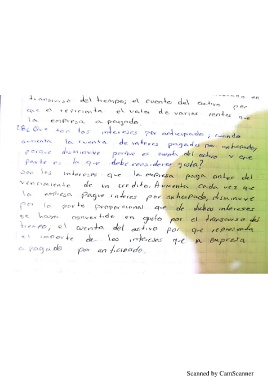 transcurso del tiempo; el cuenta del activo por
que el representa el valor de varias rentas que
la empresa a pagado.
¿Que son los intereses por anticipado, cuando
aumenta la cuenta de interes pagados por anticipado,
porque disminuye porque es cuenta del activo y que
parte es la que debe considerar gasto?
son los intereses que la empresa paga antes del
vencimiento de un credito. Aumenta cada vez que
la empresa pague interes por anticipado, disminuye
por la parte proporcional que de dichos intereses
se haya convertido en gasto por el transcurso del
tiempo; el cuenta del activo por que representa
el importe de los intereses que la empresa
a pagado por anticipado.
Scanned by CamScanner